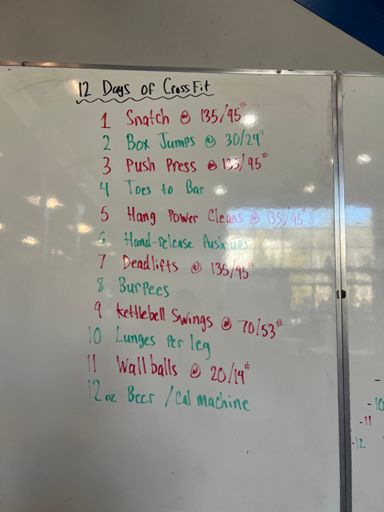 12 Days of CrossFit
1 Snatch @ 135/95#
2 Box Jumps @ 30/24"
3 Push Press @ 135/95#
4 Toes to Bar
5 Hang Power Cleans @ 135/95#
6 Hand-release Pushups
7 Deadlifts @ 135/95#
8 Burpees
9 Kettlebell Swings @ 70/53#
10 Lunges Per leg
11 Wall balls @ 20/14#
12 oz Beer / Cal machine
- 10
- 11
- 12